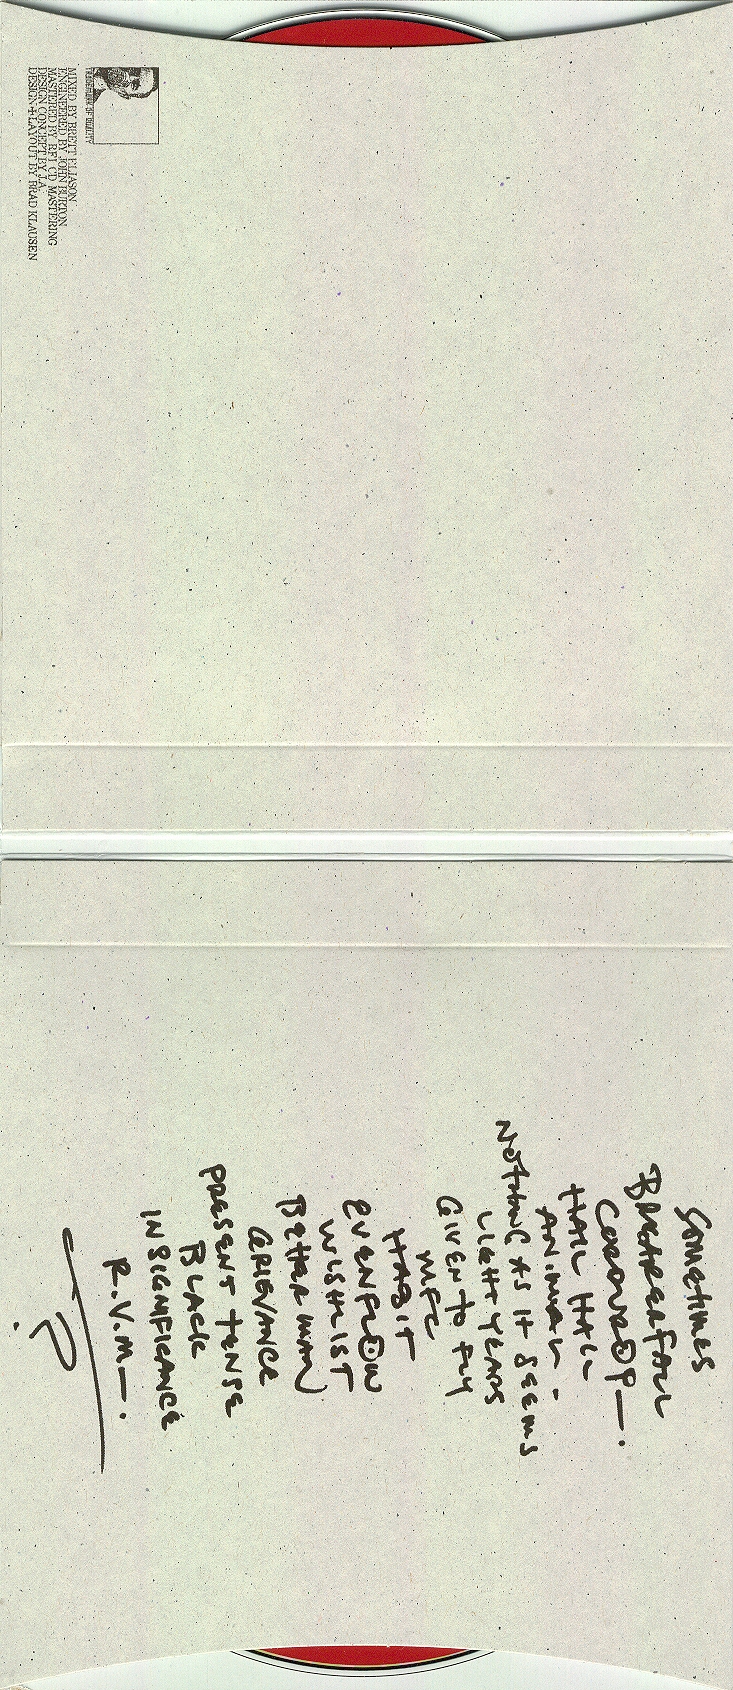 TRADEMARK OF QUALITY
MIXED BY BRETT ELIASON
ENGINEERED BY JOHN BURTON
MASTERED BY RFI CD MASTERING
DESIGN CONCEPT BY J.A.
DESIGN + LAYOUT BY BRAD KLAUSEN
SOMETIMES
BREAKERFALL
CORDUROY—.
HAIL HAIL
ANIMAL -
NOTHING AS IT SEEMS
LIGHT YEARS
GIVEN TO FLY
MFC
HABIT
EVENFLOW
WISHLIST
BETTER MAN
GRIEVANCE
PRESENT TENSE
BLACK
INSIGNIFICANCE
R.V.M—.
?